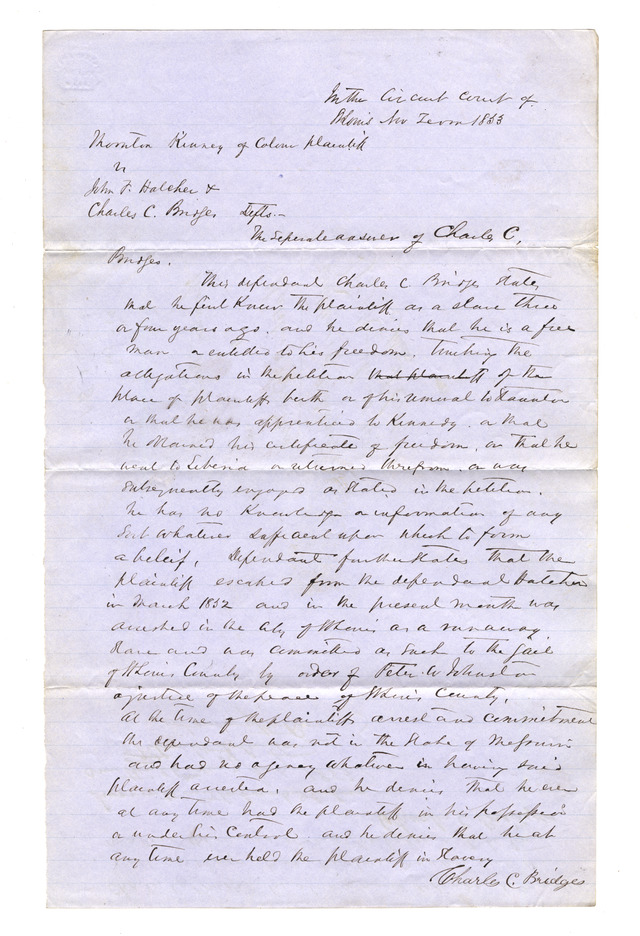 In the Circuit Court of
St Louis Nov Term 1853
Thornton Kinney of Colour plaintiff
vs
John F. Hatcher &
Charles C. Bridges Defts.-
The Seperate answer of Charles C.
Bridges.
This defendant Charles C Bridges States
that he first Knew the plaintiff as a slave three
or four years ago. and he denies that he is a free
man or entitled to his freedom. touching the
allegations in the petition that plaintiff of the
place of plaintiffs birth or of his removal to Staunton
or that he was apprenticed to Kennedy. or that
he obtained his certificate of freedom, or that he
went to Liberia or returned therefrom. or was
subsequently engaged as stated in the petition.
he has no Knowledge or information of any
Sort whatever sufficient upon which to form
a beleif, Defendant further States that the
plaintiff escaped from the defendant Hatcher
in March 1852 and in the present month was
arrested in the City of St Louis as a runaway
Slave and was committed as Such to the Jail
of St Louis County by order of Peter W Johnston
a justice of the peace of St Louis County,
At the time of the plaintiffs arrest and commitment
the defendant was not in the State of Missouri
and had no agency whatever in having said
plaintiff arrested, and he denies that he ever
at any time had the plaintiff in his possession
or under his Control and he denies that he at
any time ever held the plaintiff in Slavery
Charles C. Bridges